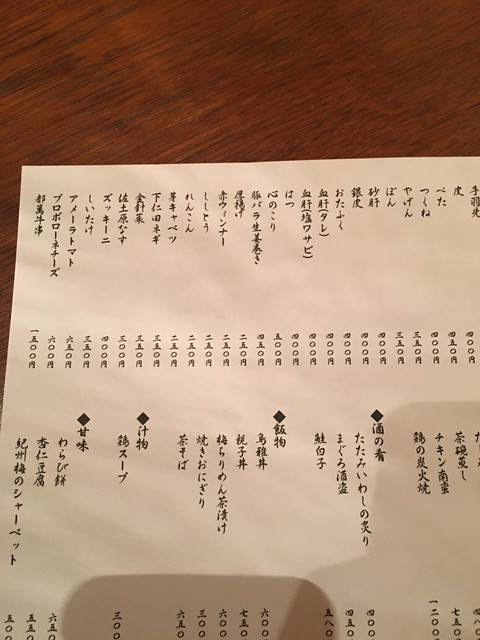 手羽先
皮 四〇〇円
ぺた 四五〇円
つくね 四〇〇円
やげん 三五〇円
ぼん 三五〇円
砂肝 四〇〇円
銀皮 四〇〇円
おたふく 四〇〇円
血肝(タレ) 四〇〇円
血肝塩ワサビ) 四〇〇円
はつ 四〇〇円
心のこり 五〇〇円
豚バラ生姜巻き 四五〇円
厚揚げ 二五〇円
赤ウィンナー 二五〇円
ししとう 二〇〇円
れんこん 二〇〇円
芽キャベツ 二五〇円
下仁田ネギ 三五〇円
金針菜 三五〇円
佐土原なす 三〇〇円
ズッキーニ 四〇〇円
しいたけ 三五〇円
アメーラトマト 六五〇円
プロボローネチーズ 六〇〇円
都萬牛串 一五〇〇円
茶碗蒸し
チキン南蛮
鶏の炭火焼
◆酒の肴
たたみいわしの炙り
まぐろ酒盗
鮭白子
◆飯物
鳥雅丼
親子丼
梅ちりめん茶漬け
焼きおにぎり
茶そば
◆汁物
鶏スープ
◆甘味
わらび餅
杏仁豆腐
紀州梅のシャーベット